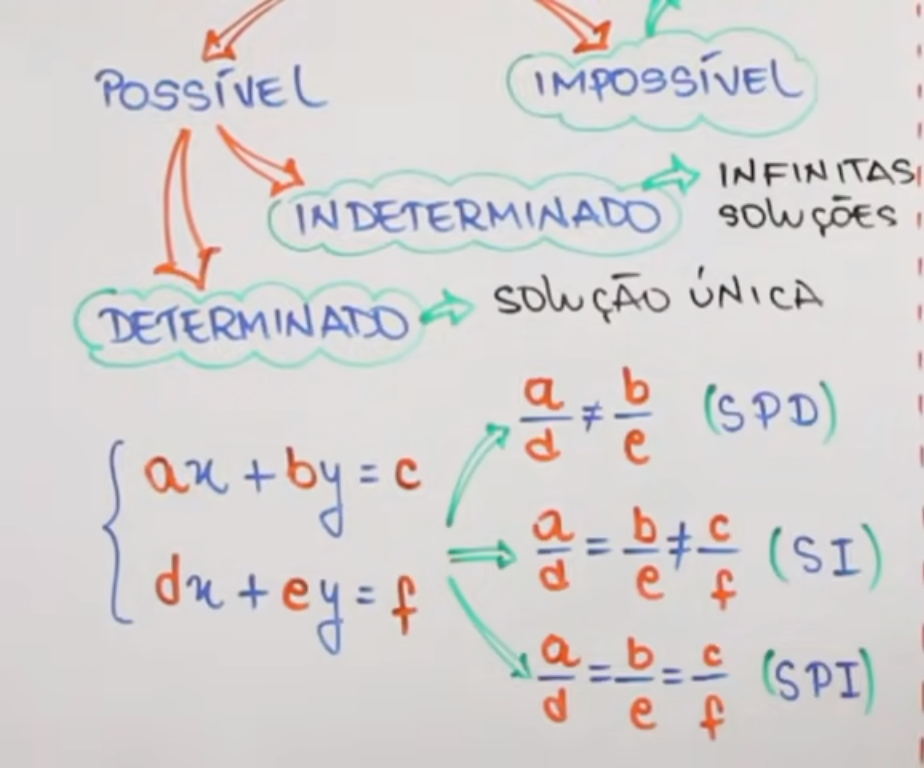 POSSÍVEL
IMPOSSÍVEL
INDETERMINADO
INFINITAS
SOLUÇÕES
DETERMINADO
SOLUÇÃO ÚNICA
a/d ≠ b/e (SPD)
ax + by = c
a/d = b/e ≠ c/f (SI)
dx + ey = f
a/d = b/e = c/f (SPI)